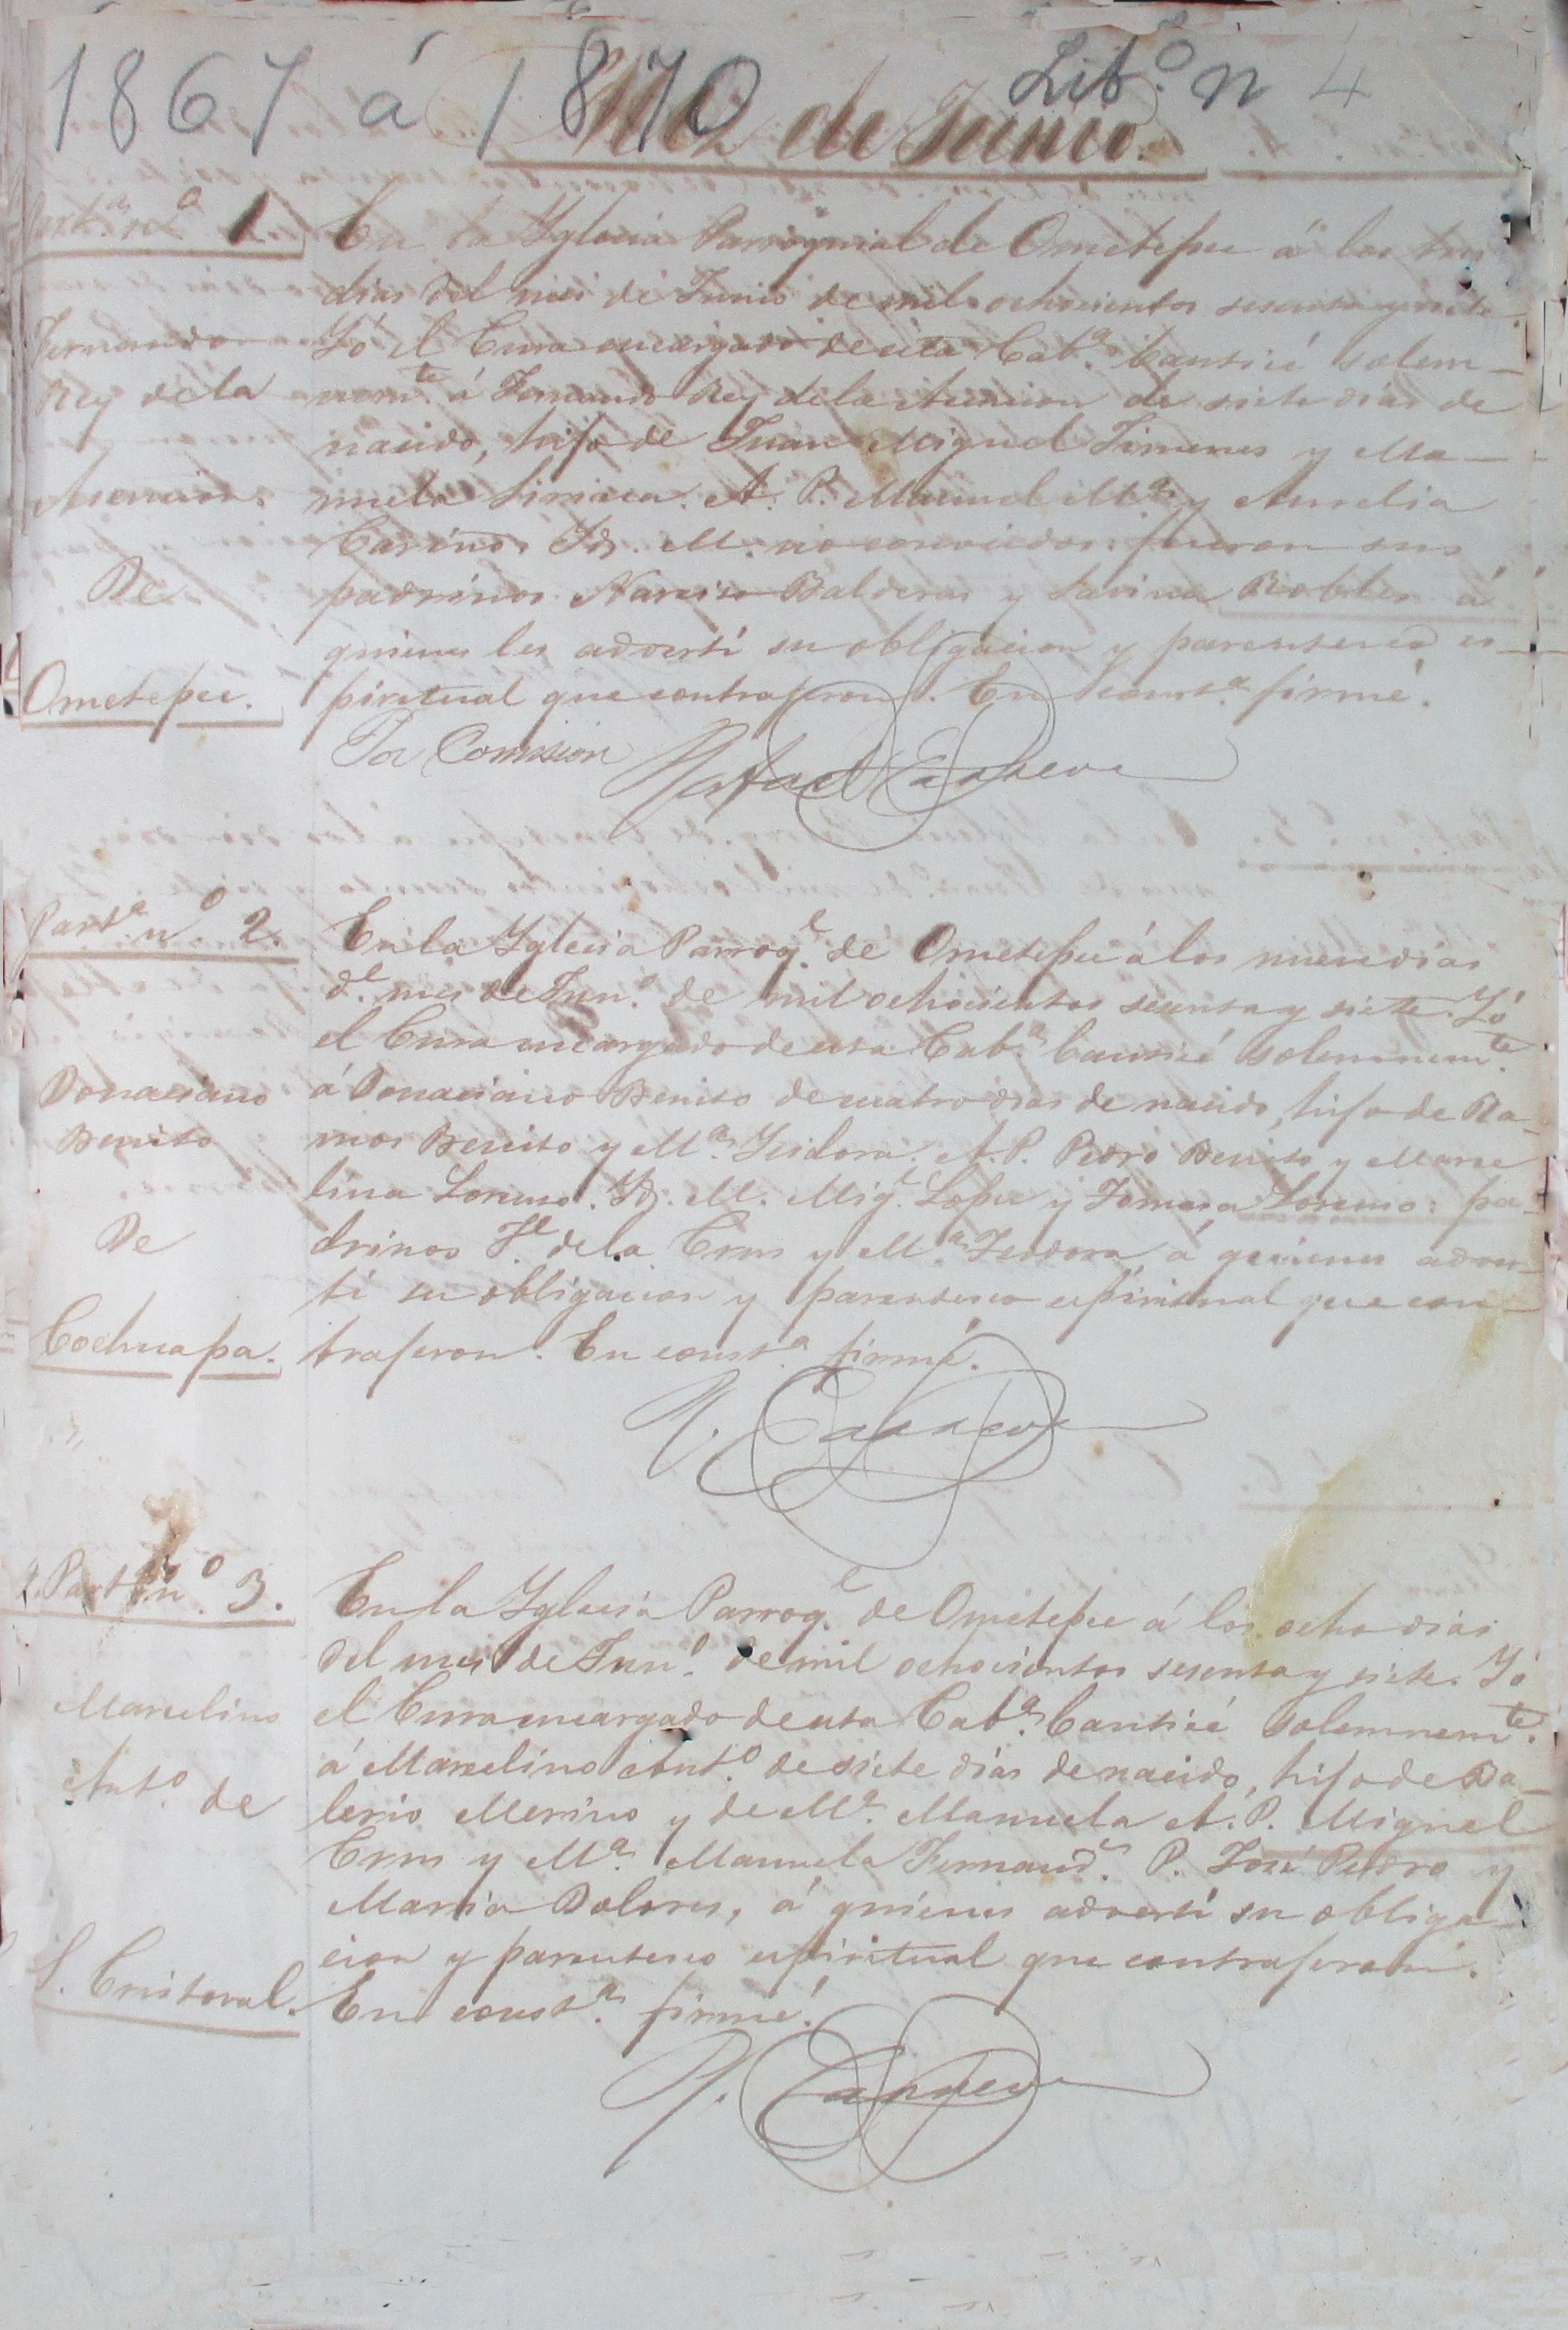 1867 á 1870 Lib.o n 4
Mes de Junio.
Part.a n.o 1.
Fernando
Rey de la
Asencion.
De
Ometepec.
En la Yglecia Parroquial de Ometepec á los tres
dias del mes de Junio de mil ochocientos sesenta y siete.
Yó el Cura encargado de esta Cab.a bauticé solem-
nem.te á Fernando Rey de la Asencion de siete dias de
nacido, hijo de Juan Miguel Jimenes y Ma-
nuela A. P. Manuel M.a y Aurelia
Cariño. Id. M. no conocidos: fueron sus
padrinos Narciso Balderas y Savina Robles á
quienes les advertí su obligacion y parentesco es-
piritual que contrajeron. En const.a firmé.
Por Comision Rafael
Part.a n.o 2.
Donaciano
Benito
De
Cochuapa.
En la Yglecia Parroq.l de Ometepec á los nueve dias
d.l mes de Jun.o de mil ochocientos sesenta y siete. Yó
el Cura encargado de esta Cab.a bauticé solemnem.te
á Donaciano Benito de cuatro dias de nacido, hijo de Ra-
mos Benito y M.a Ysidora. A. P. Pedro Benito y Marce
lina Lorenso. Id. M. Mig.l Lopez y Tomasa Lorenso: pa-
drinos J.e de la Crus y M.a Teodora, á quienes adver-
tí su obligacion y parentesco espiritual que con-
trajeron. En const.a firmé.
R.
Part.a n.o 3.
Marcelino
Ant.o de
S. Cristoval.
En la Yglecia Parroq.l de Ometepec á los ocho dias
del mes de Jun.o de mil ochocientos sesenta y siete. Yó
el Cura encargado de esta Cab.a bauticé solemnem.te
á Marcelino Ant.o de siete dias de nacido, hijo de Ba-
lerio Merino y de M.a Manuela A. P. Miguel
Crus y M.a Manuela Fernand.s P. José Pedro y
Maria Dolores, á quienes advertí su obliga-
cion y parentesco espiritual que contrajeron.
En const.a firmé.
R.